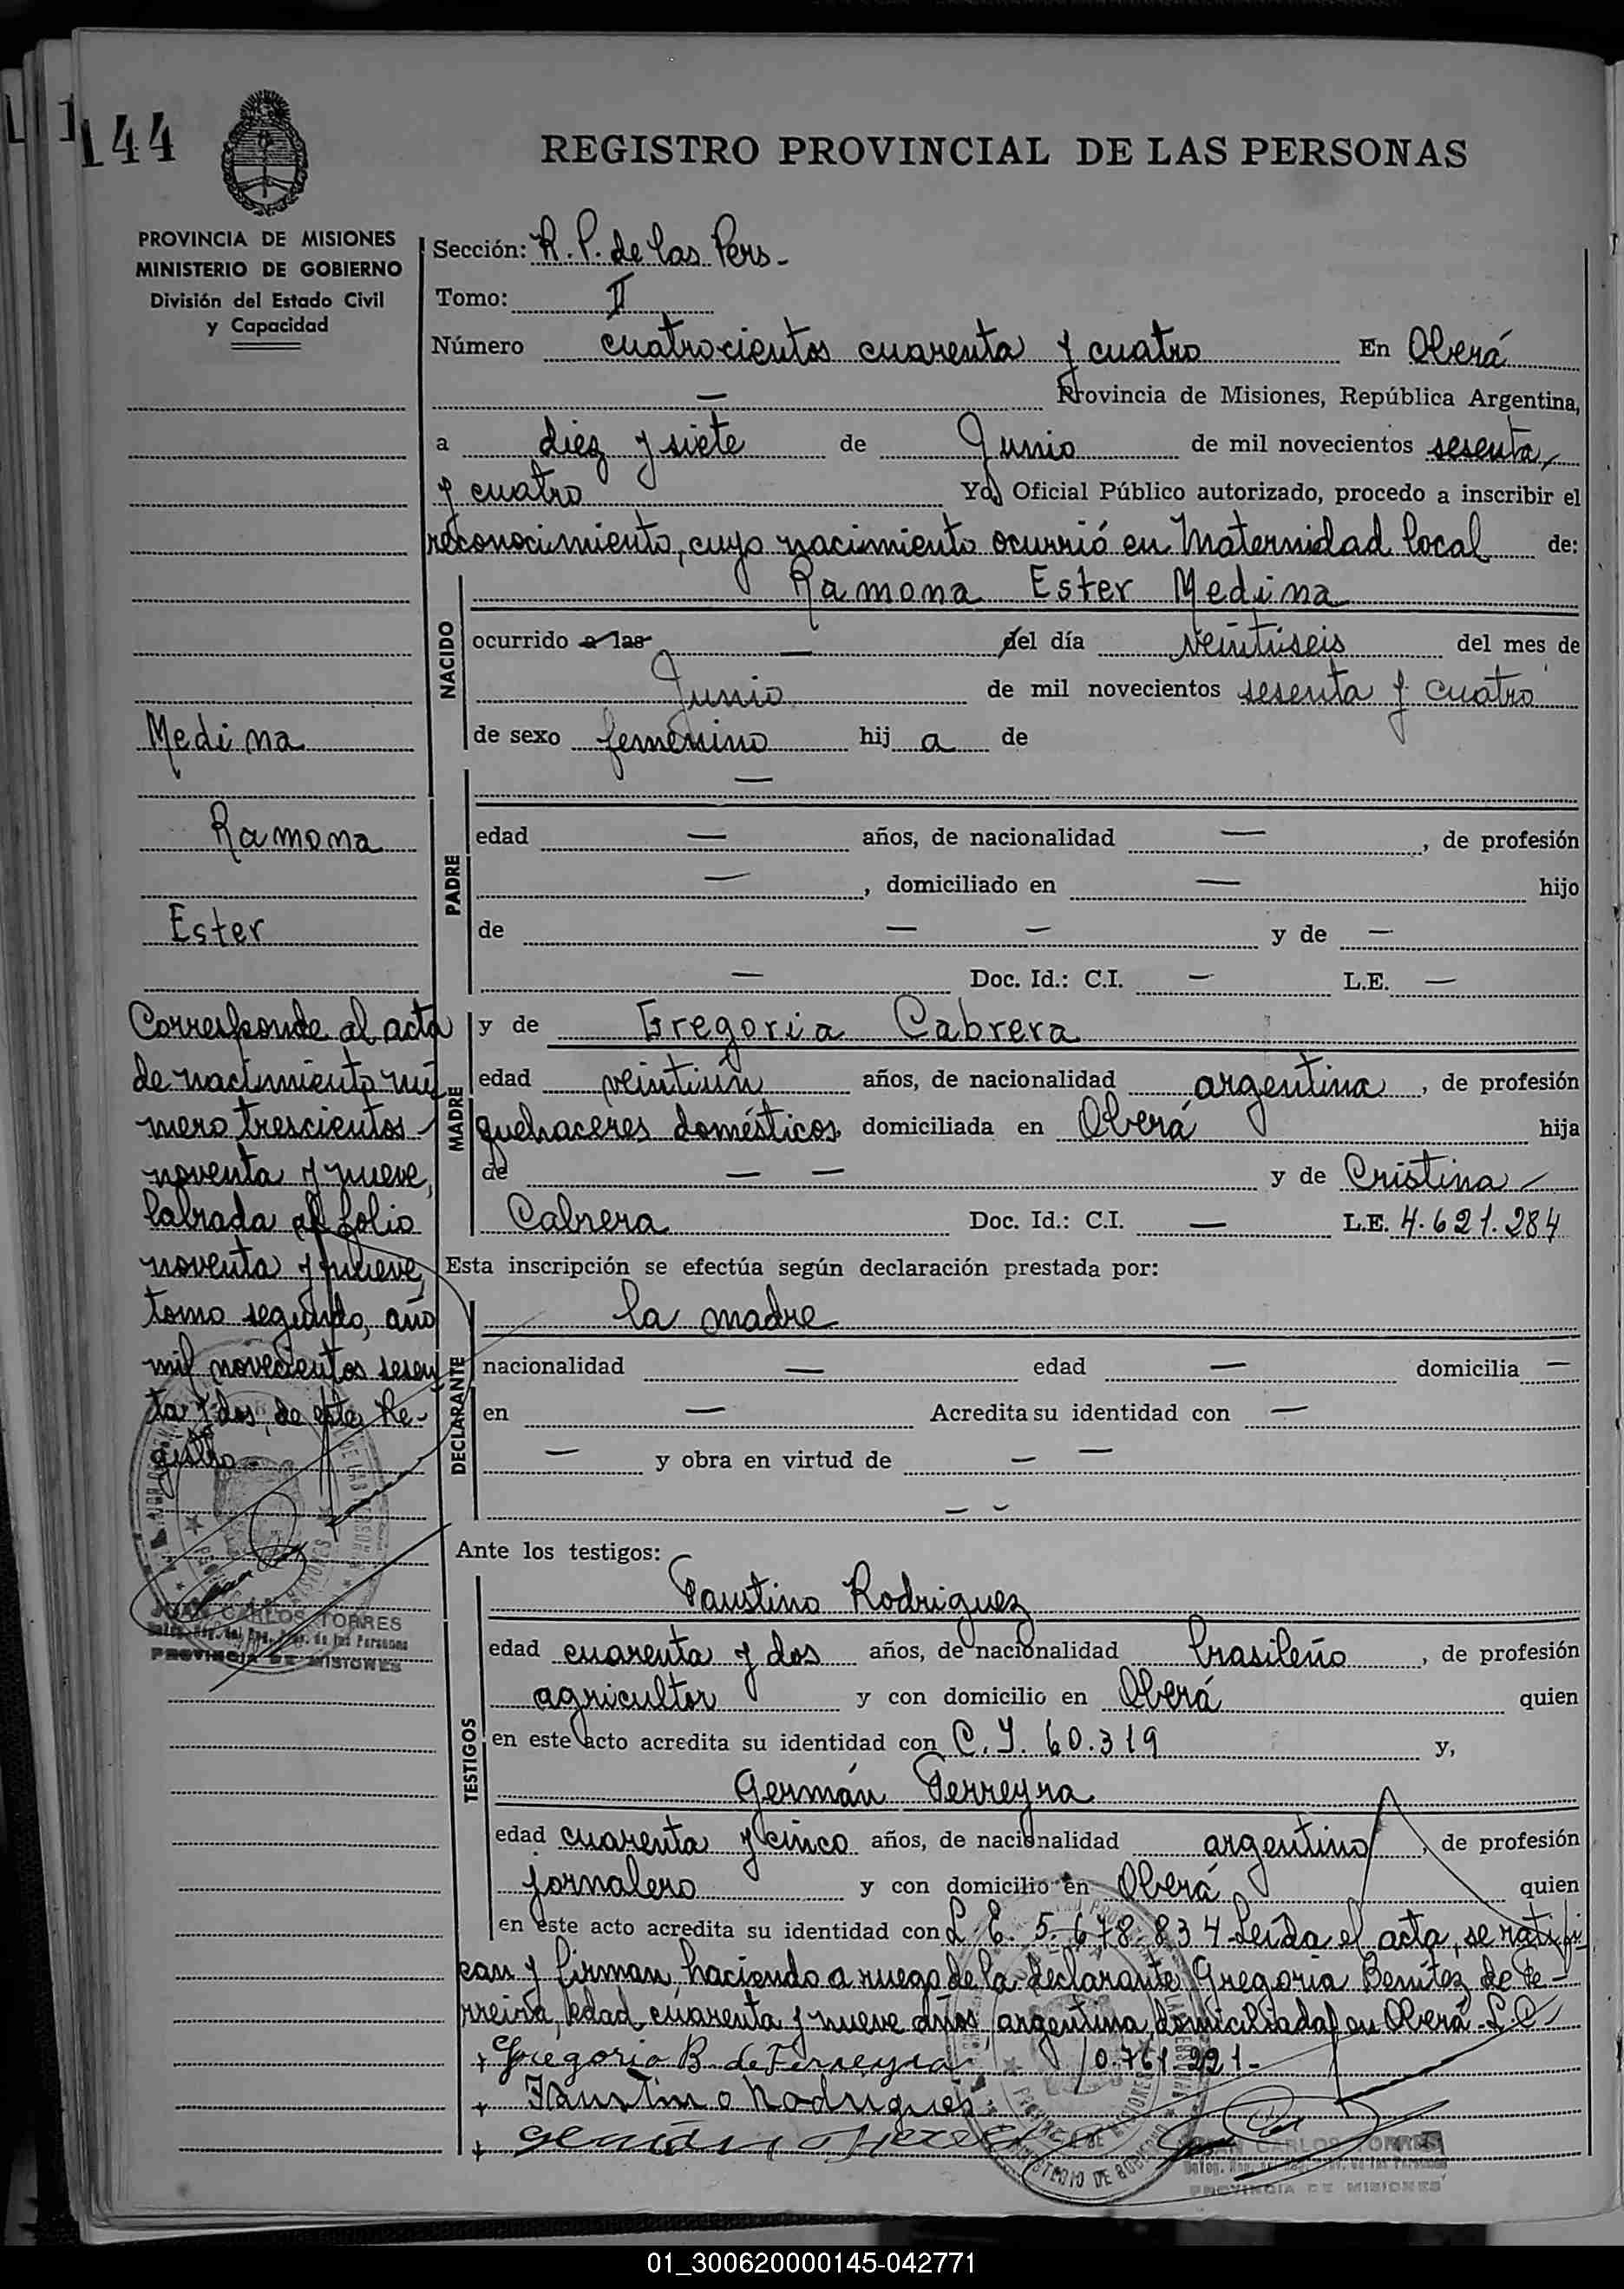 144
REGISTRO PROVINCIAL DE LAS PERSONAS
PROVINCIA DE MISIONES
MINISTERIO DE GOBIERNO
División del Estado Civil
y Capacidad
Sección: R. P. de las Pers.-
Tomo: II
Número cuatrocientos cuarenta y cuatro En Oberá
— Provincia de Misiones, República Argentina,
a diez y siete de Junio de mil novecientos sesenta
y cuatro Yo, Oficial Público autorizado, procedo a inscribir el
reconocimiento, cuyo nacimiento ocurrió en Maternidad local de:
NACIDO
Ramona Ester Medina
ocurrido a las — del día veintiseis del mes de
Junio de mil novecientos sesenta y cuatro
de sexo femenino hij a de
PADRE
—
edad — años, de nacionalidad — , de profesión
— , domiciliado en — hijo
de — — y de —
— Doc. Id.: C.I. — L.E. —
MADRE
y de Gregoria Cabrera
edad veintiún años, de nacionalidad argentina , de profesión
quehaceres domésticos domiciliada en Oberá hija
de — — y de Cristina
Cabrera Doc. Id.: C.I. — L.E. 4.621.284
Esta inscripción se efectúa según declaración prestada por:
DECLARANTE
la madre
nacionalidad — edad — domicilia —
en — Acredita su identidad con —
— y obra en virtud de — —
— —
Ante los testigos:
TESTIGOS
Faustino Rodriguez
edad cuarenta y dos años, de nacionalidad brasileño , de profesión
agricultor y con domicilio en Oberá quien
en este acto acredita su identidad con C. I. 60.319 y,
Germán Ferreyra
edad cuarenta y cinco años, de nacionalidad argentino , de profesión
jornalero y con domicilio en Oberá quien
en este acto acredita su identidad con L. E. 5.678.834 Leída el acta, se ratifi
can y firman, haciendo a ruego de la declarante Gregoria Benítez de Fe-
rreira, edad cuarenta y nueve años, argentina, domiciliada en Oberá L.C.
+ Gregoria B. de Ferreyra 0.761.221-
+ Faustino Rodrigues
+ German
JUAN CARLOS TORRES
PROVINCIA DE MISIONES
Medina
Ramona
Ester
Corresponde al acta
de nacimiento nú
mero trescientos
noventa y nueve,
labrada al folio
noventa y nueve,
tomo segundo, año
mil novecientos sesen
ta y dos, de este Re-
gistro.-
JUAN CARLOS TORRES
Deleg. Reg. del Reg. Prov. de las Personas
PROVINCIA DE MISIONES
01_300620000145-042771